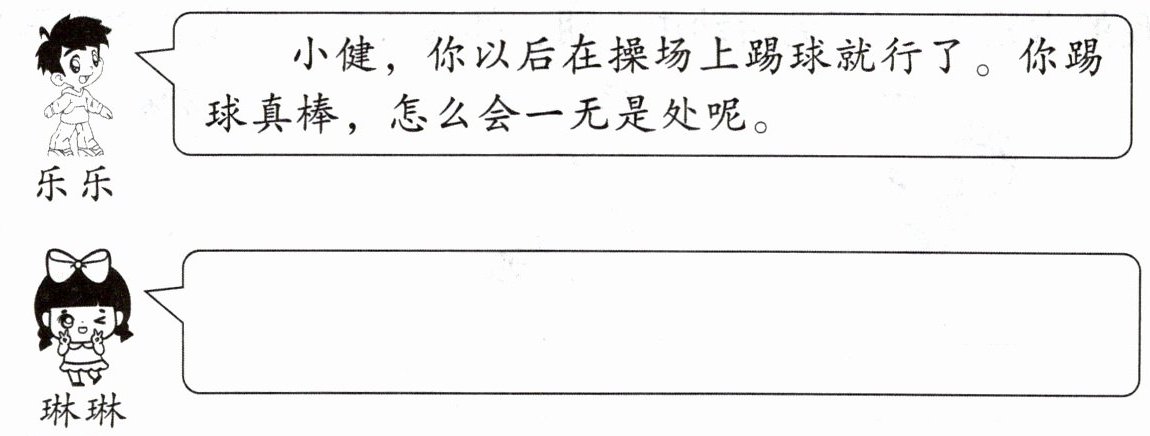 小健，你以后在操场上踢球就行了。你踢
球真棒，怎么会一无是处呢。
乐乐
琳琳